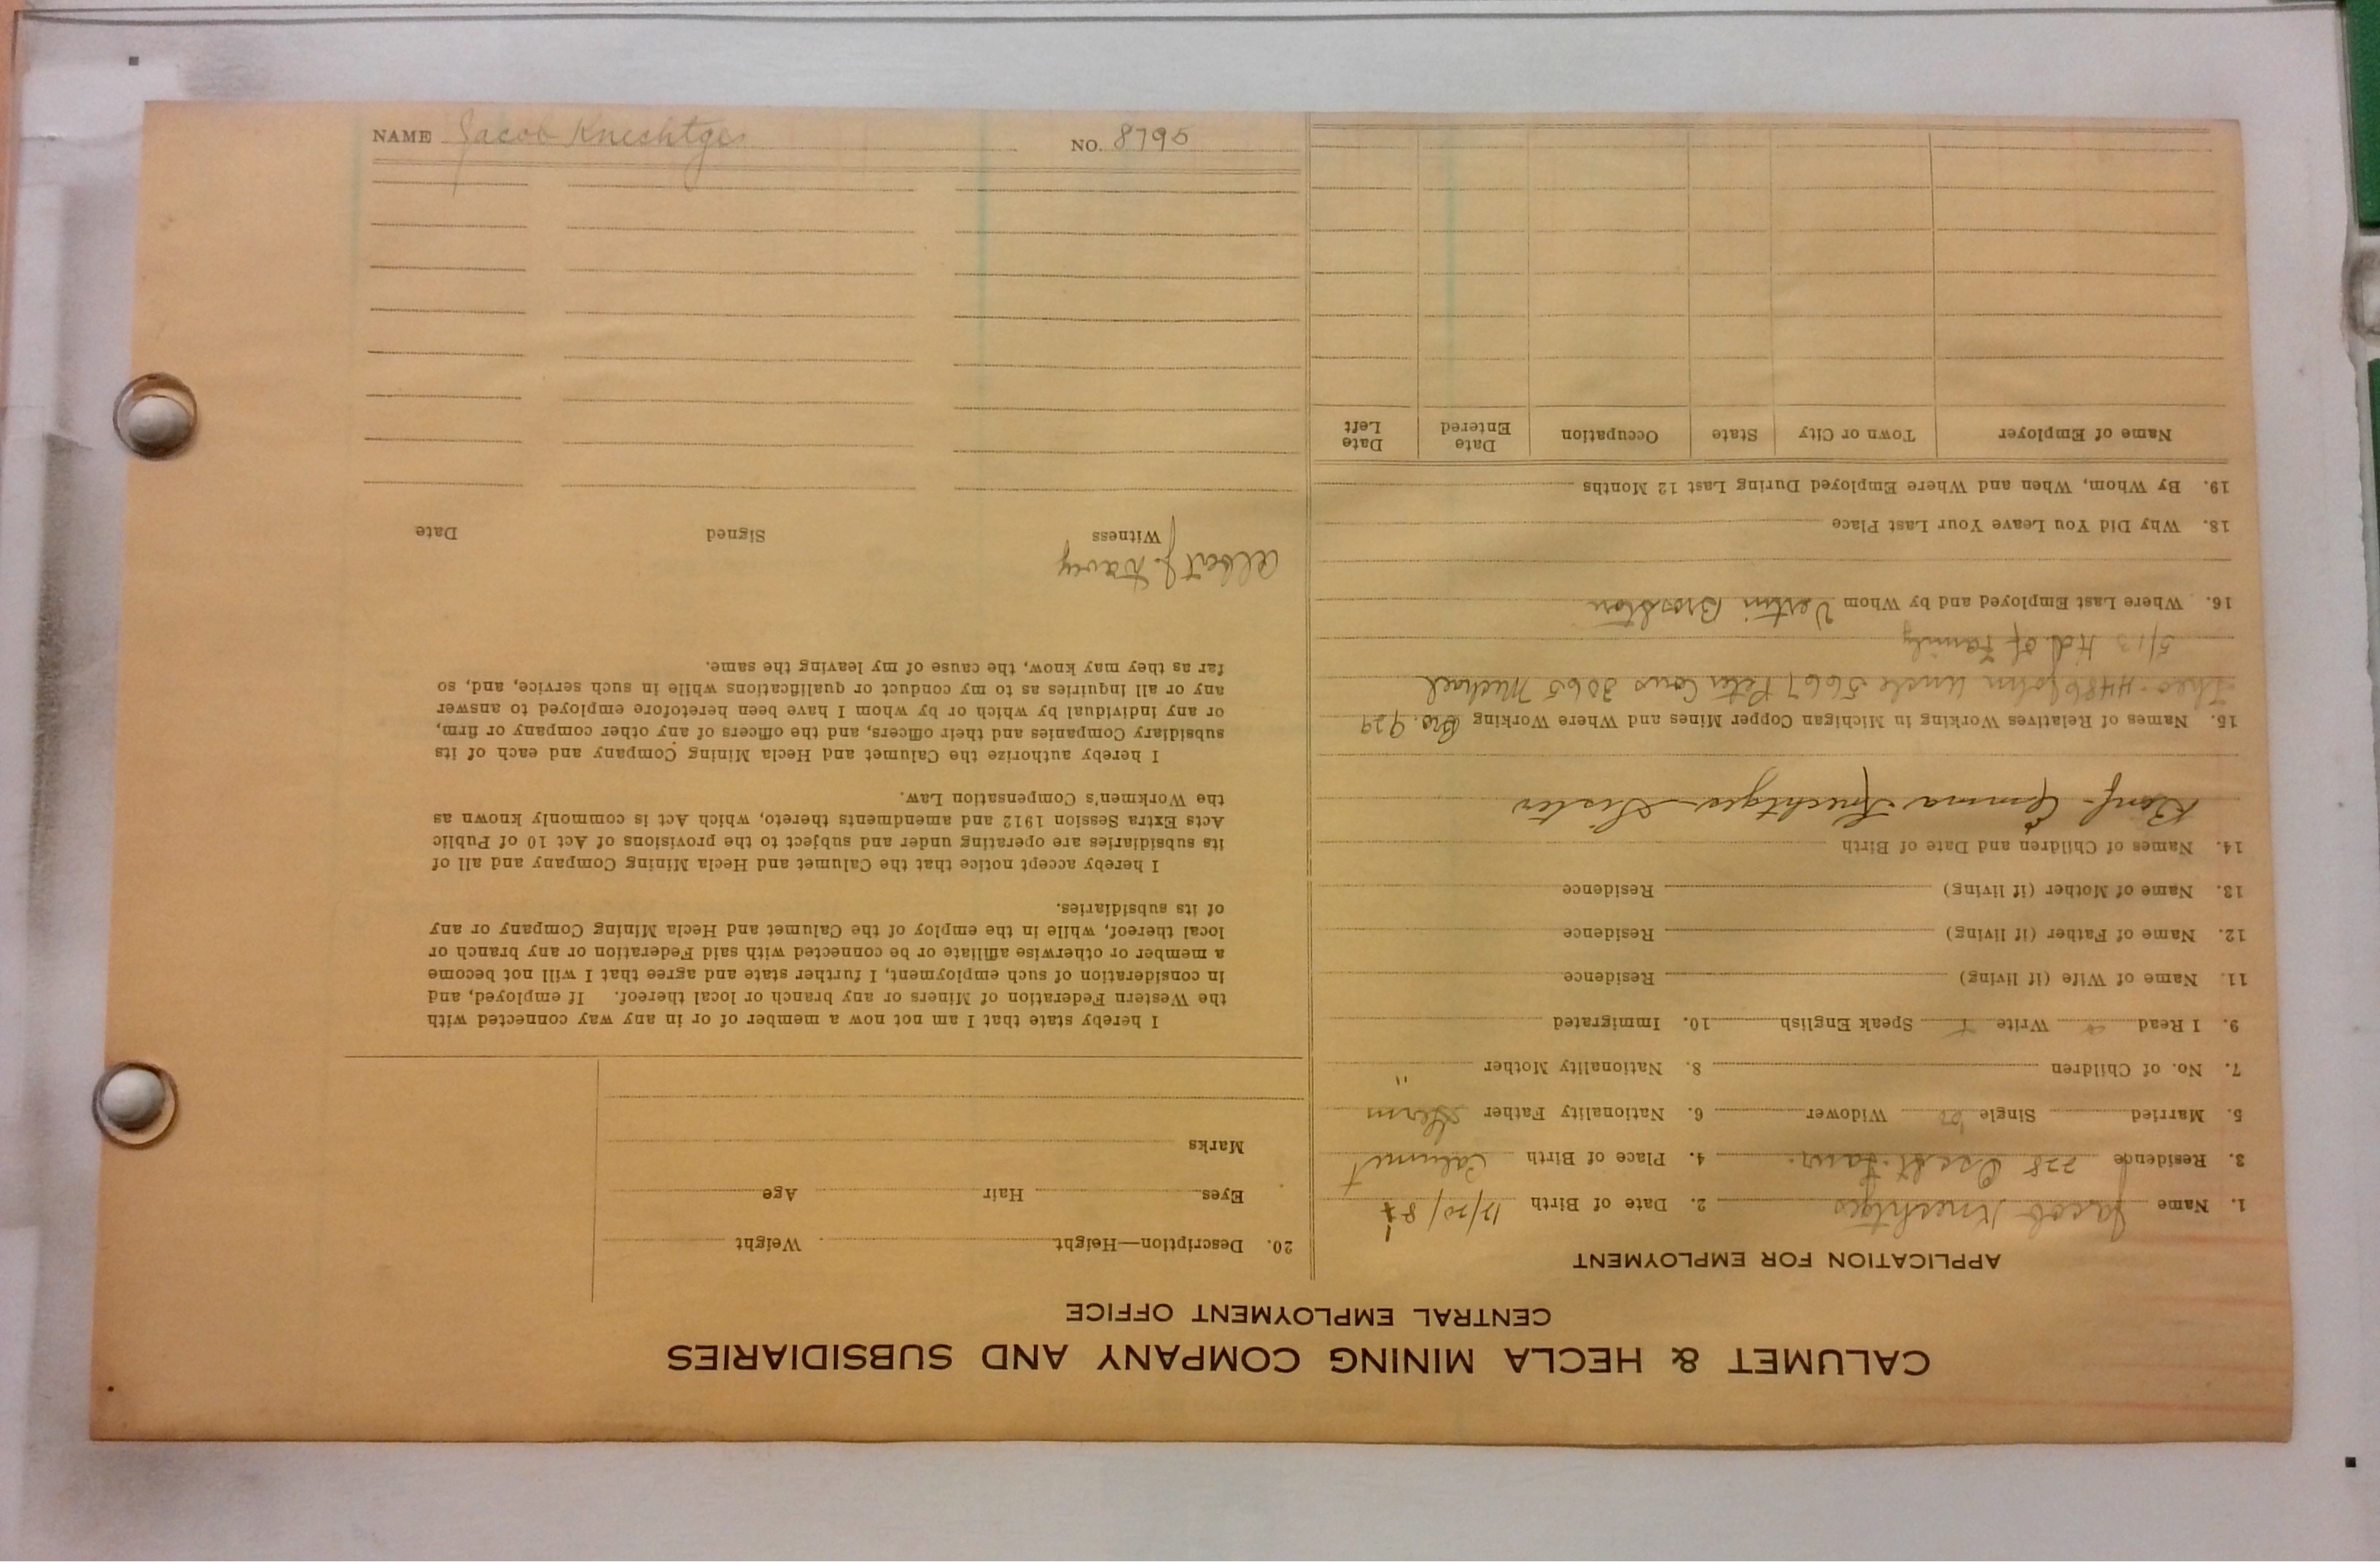 CALUMET & HECLA MINING COMPANY AND SUBSIDIARIES
CENTRAL EMPLOYMENT OFFICE
APPLICATION FOR EMPLOYMENT
1. Name Jacob Knechtges 2. Date of Birth 12/20/8
3. Residence 728 4. Place of Birth Calumet
5. Married Single Widower 6. Nationality Father Germ
7. No. of Children 8. Nationality Mother "
9. I Read Write Speak English 10. Immigrated
11. Name of Wife (if living) Residence
12. Name of Father (if living) Residence
13. Name of Mother (if living) Residence
14. Names of Children and Date of Birth
Emma Knechtges - Sister
15. Names of Relatives Working in Michigan Copper Mines and Where Working Bro. 929
Theo. 4486 John Uncle 5667 Peter Cous 3065 Michael
5/13 Hd. of Family
16. Where Last Employed and by Whom
18. Why Did You Leave Your Last Place
19. By Whom, When and Where Employed During Last 12 Months
Name of Employer Town or City State Occupation Date Entered Date Left
20. Description—Height Weight
Eyes Hair Age
Marks
I hereby state that I am not now a member of or in any way connected with
the Western Federation of Miners or any branch or local thereof. If employed, and
in consideration of such employment, I further state and agree that I will not become
a member or otherwise affiliate or be connected with said Federation or any branch or
local thereof, while in the employ of the Calumet and Hecla Mining Company or any
of its subsidiaries.
I hereby accept notice that the Calumet and Hecla Mining Company and all of
its subsidiaries are operating under and subject to the provisions of Act 10 of Public
Acts Extra Session 1912 and amendments thereto, which Act is commonly known as
the Workmen's Compensation Law.
I hereby authorize the Calumet and Hecla Mining Company and each of its
subsidiary Companies and their officers, and the officers of any other company or firm,
or any individual by which or by whom I have been heretofore employed to answer
any or all inquiries as to my conduct or qualifications while in such service, and, so
far as they may know, the cause of my leaving the same.
Albert J.
Witness Signed Date
NAME Jacob Knechtges NO. 8795